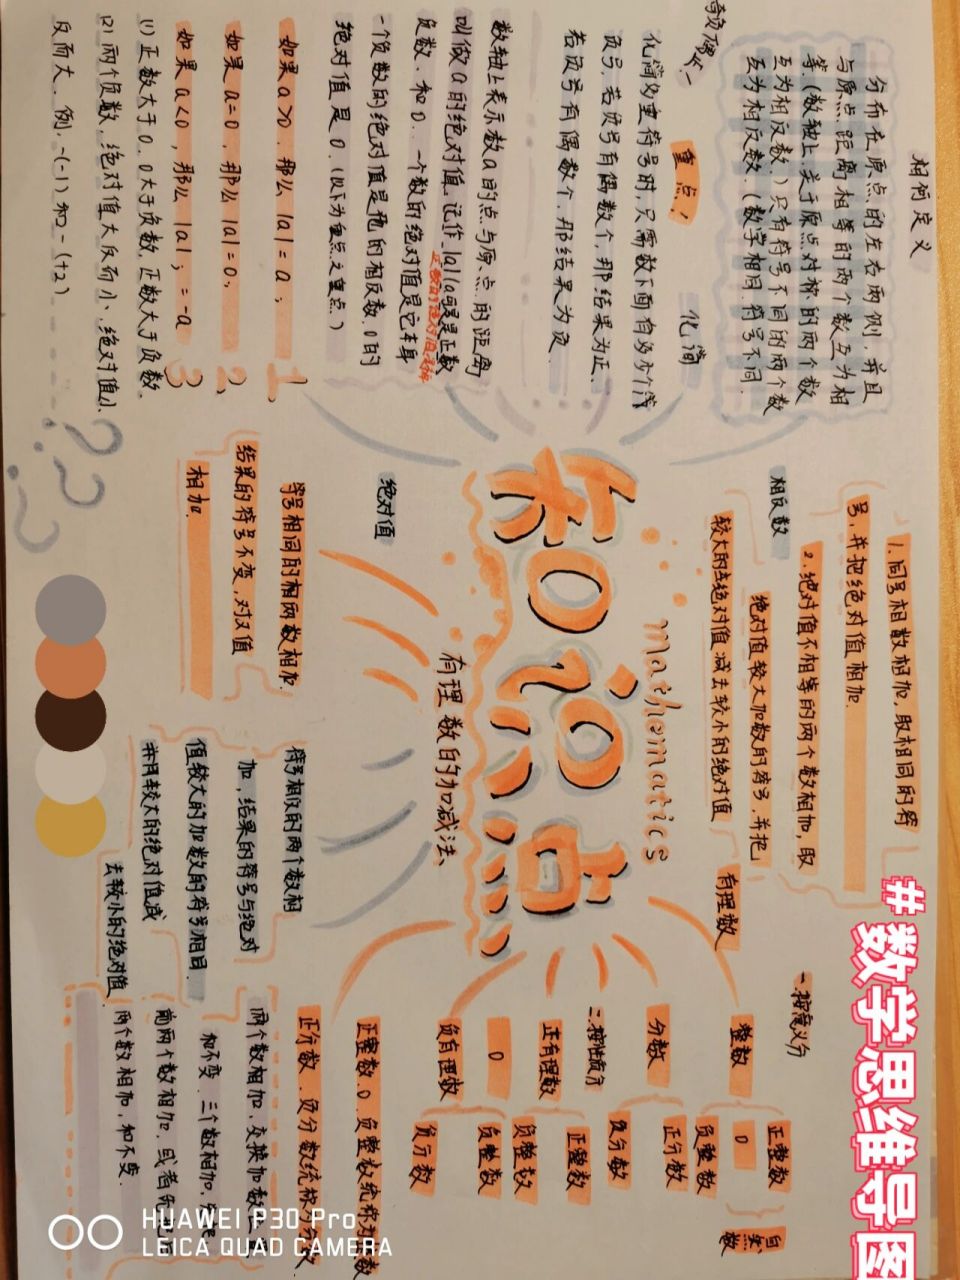 相同定义
分布在原点的左右两侧,并且
与原点距离相等的两个数互为相
等.(数轴上关于原点对称的两个数
互为相反数.)只有符号不同的两个数
互为相反数.(数字相同.符号不同.
化简
重点!
化简多重符号时,只需数下面有多少个符
负号.若负号有偶数个,那结果为正.
若负号有偶数个,那结果为负.
数轴上表示数a的点与原点的距离
叫做a的绝对值,记作|a|
负数.和0.一个数的绝对值是它本身
一个负数的绝对值是他的相反数.0的
绝对值是0.(以下为重点之重点.)
如果a>0.那么|a|=a;
1、
如果a=0.那么|a|=0;
2、
如果a<0,那么|a|;=-a
3
(1)正数大于0.0大于负数,正数大于负数.
(2)两个负数,绝对值大反而小,绝对值小
反而大.例:-(-1)和-(+2)
???
相反数
1.同号相数相加,取相同的符
号,并把绝对值相加.
2.绝对值不相等的两个数相加,取
绝对值较大加数的符号,并把
较大的绝对值减去较小的绝对值
mathematics
知识点
有理数的加减法
绝对值
符号相同的相两数相加.
结果的符号不变,对值
相加.
符号相反的两个数相
加,结果的符号与绝对
值较大的加数的符号相同.
并用较大的绝对值减
去较小的绝对值
有理数
一.按意义分
整数
正整数
0
负整数
自然数
分数
正分数
负分数
二.按性质分
正有理数
正整数
负整数
0
负有理数
负整数
负分数
正整数.0.负整数统称为整数
正分数.负分数统称为分数
两个数相加,交换加数
和不变.三个数相加,先把
前两个数相加.或者先把后
两个数相加,和不变.
#数学思维导图
HUAWEI P30 Pro
LEICA QUAD CAMERA